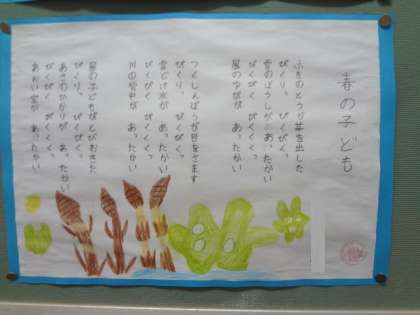 春の子ども
ふきのとうが芽を出した
ぴくり、ぴくぴく。
雪のぼうしが、あったかい
ぴくぴく ぴくくく。
風のゆびが あったかい
つくしんぼうが目をさます
ぴくり、ぴくぴく。
雪どけ水が、あったかい
ぴくぴく ぴくくく。
川の背中が あったかい
星の子どもがとびおきた
ぴくり。ぴくぴく。
あさのひかりが あったかい
ぴくぴく ぴくくく。
あおい空が あったかい